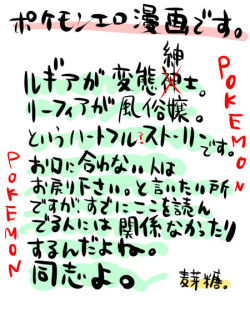 ポケモンエロ漫画です。
紳
ルギアが変態紳士。
リーフィアが風俗嬢。
というハートフル?ストーリーです。
お口に合わない人は
お戻り下さい。と言いたい所
ですが、すでにここを読ん
でる人には関係なかたり
するんだよね。
同志よ。
麦芽糖。
POKEMON
POKEMON